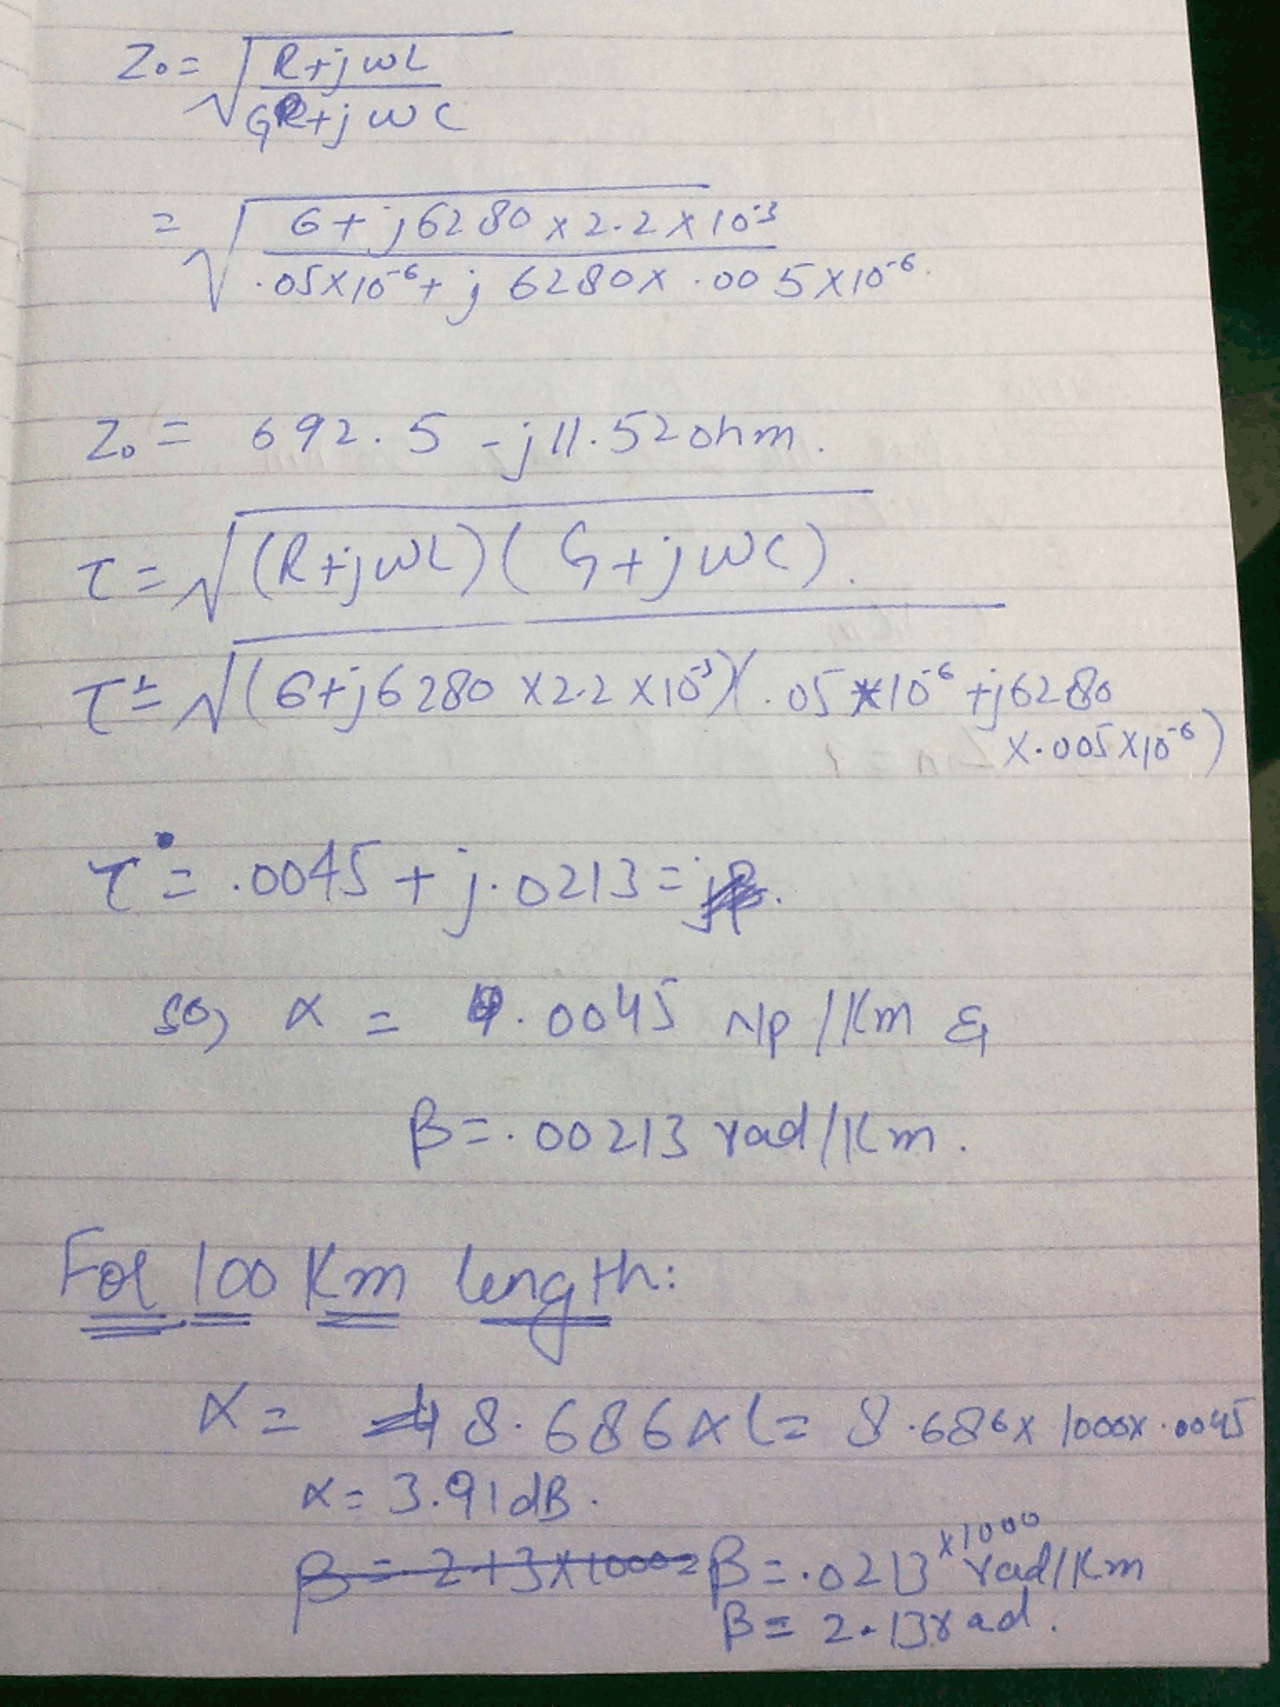 Z₀ = √((R+jωL)/(G+jωC))
= √((6+j6280×2.2×10⁻³)/(.05×10⁻⁶+j 6280×.005×10⁻⁶.))
Z₀ = 692.5 - j11.52 ohm.
τ = √((R+jωL)(G+jωC)).
τ = √((6+j6280×2.2×10⁻³)(.05×10⁻⁶+j6280
×.005×10⁻⁶)
τ = .0045 + j.0213 =
so, α = .0045 Np/Km &
β = .00213 rad/Km.
For 100 Km length:
α = 8.686αl = 8.686×1000×.0045
α = 3.91dB.
β = 213×1000= β = .0213×1000 rad/Km
β = 2.13rad.